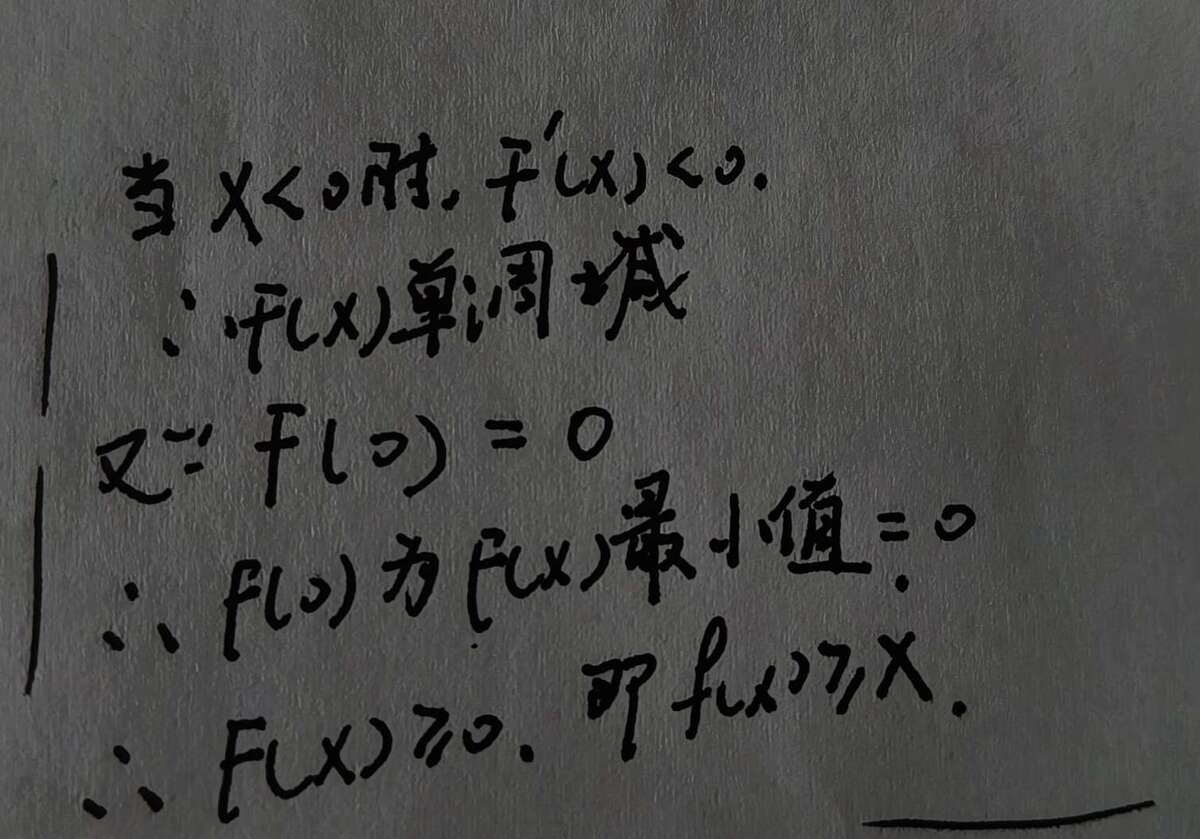 当 x<0时, F'(x)<0.
∴F(x)单调减
又∵ F(0) = 0
∴ F(0)为F(x)最小值=0.
∴ F(x)≥0. 即 f(x)≥x.